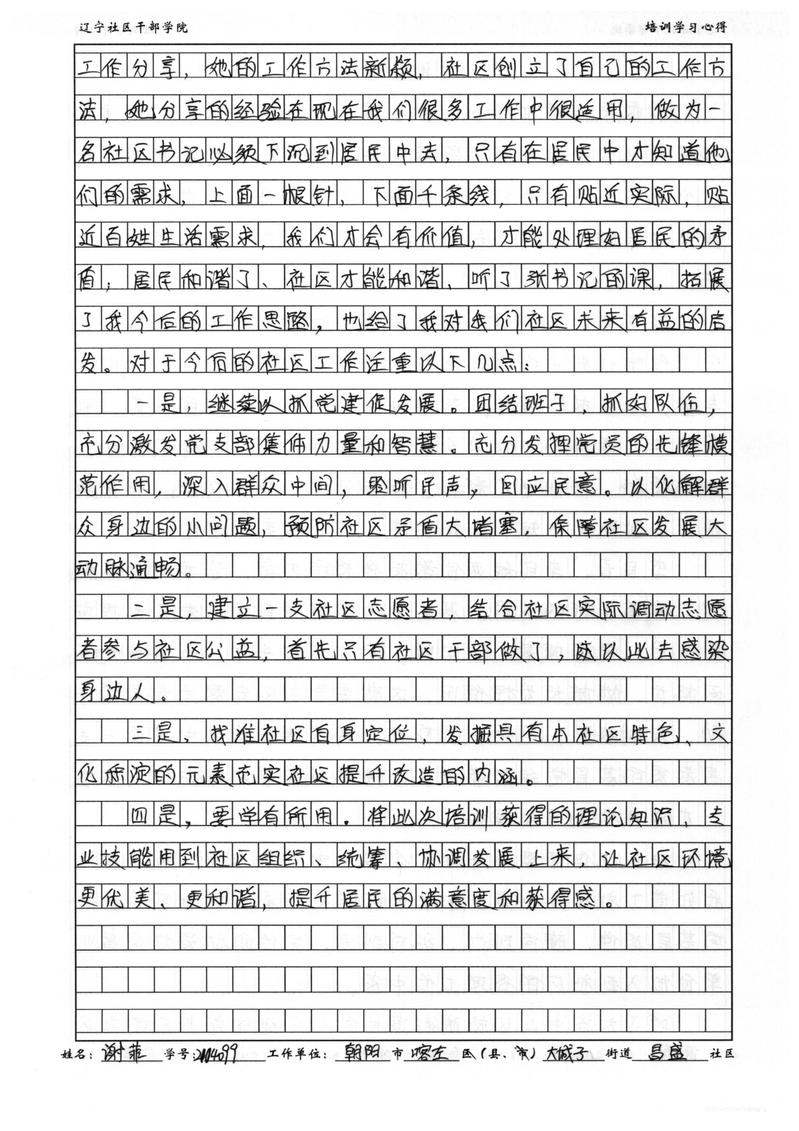 辽宁社区干部学院 培训学习心得
工作分享，她的工作方法新颖，社区创立了自己的工作方
法，她分享的经验在现在我们很多工作中很适用，做为一
名社区书记必须下沉到居民中去，只有在居民中才知道他
们的需求，上面一根针，下面千条线，只有贴近实际，贴
近百姓生活需求，我们才会有价值，才能处理好居民的矛
盾，居民和谐了、社区才能和谐、听了张书记的课，拓展
了我今后的工作思路，也给了我对我们社区未来有益的启
发。对于今后的社区工作注重以下几点：
一是，继续以抓党建促发展。团结班子，抓好队伍，
充分激发党支部集体力量和智慧。充分发挥党员的先锋模
范作用，深入群众中间，聆听民声，回应民意。以化解群
众身边的小问题，预防社区矛盾大堵塞，保障社区发展大
动脉通畅。
二是，建立一支社区志愿者，结合社区实际调动志愿
者参与社区公益，首先只有社区干部做了，既以此去感染
身边人。
三是、找准社区自身定位，发掘具有本社区特色、文
化底淀的元素充实社区提升改造的内涵。
四是，要学有所用。将此次培训获得的理论知识、专
业技能用到社区组织、统筹、协调发展上来，让社区环境
更优美、更和谐，提升居民的满意度和获得感。
姓名：谢菲 学号： 工作单位：朝阳 市 喀左 区（县、市） 大城子 街道 昌盛 社区